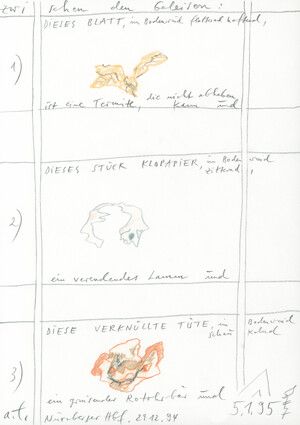 zwischen den Geleisen:
DIESES BLATT, im Bodenwind flatternd haftend,
1)
ist eine Termite, die nicht abheben kann und
DIESES STÜCK KLOPAPIER, im Bodenwind zitternd,
2)
ein verendendes Lamm und
DIESE VERKNÜLLTE TÜTE, im Bodenwind
3)
ein grinsender und
a.t. Nürnberger Hbf, 29.12.94
5.1.95